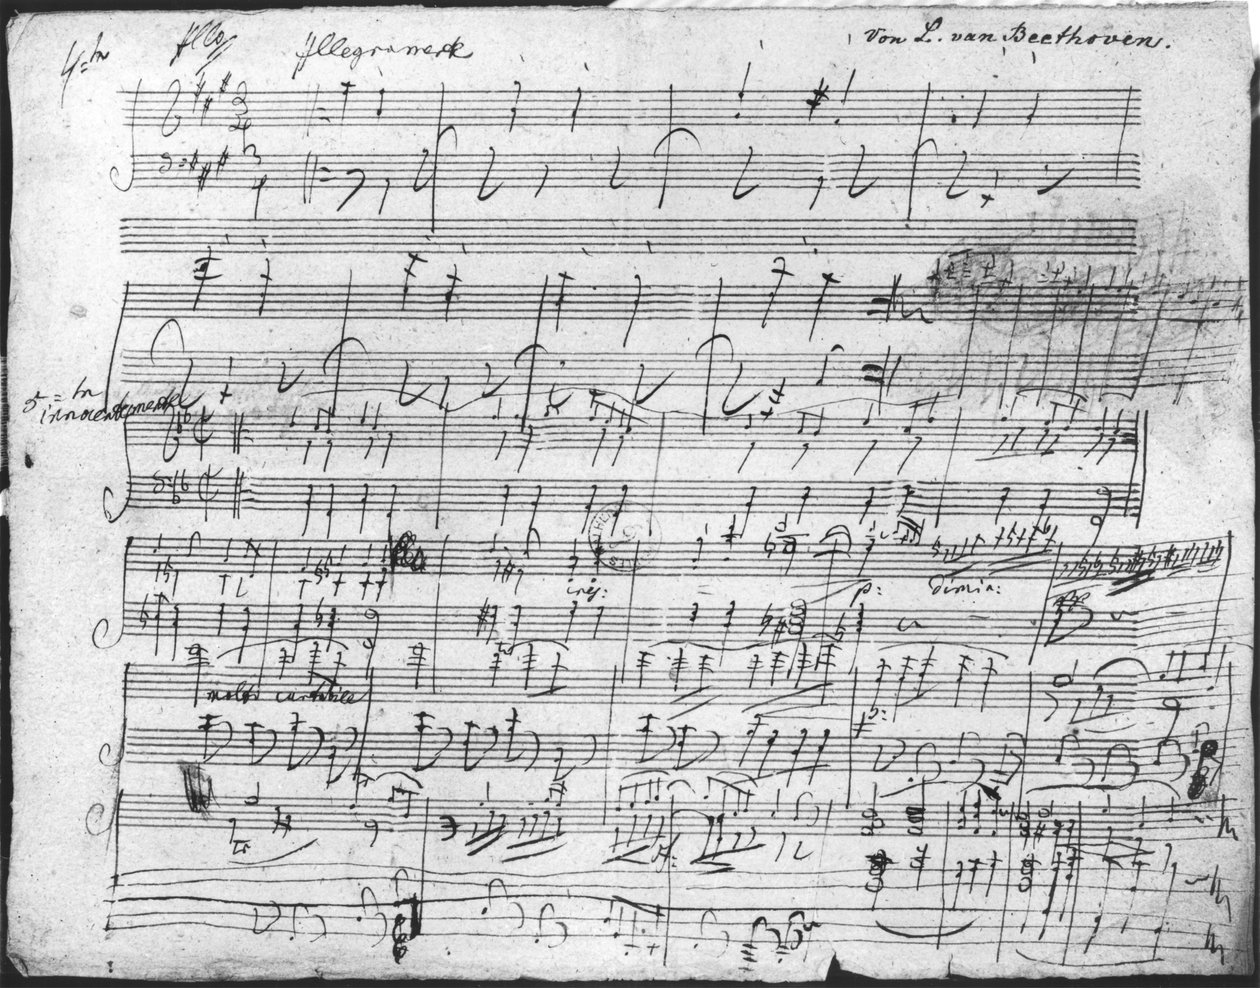 4=tn Allo Allegramente von L. van Beethoven.
5=tn
innocentemente
cres: p: dimin:
molto cantabile
p:
tr